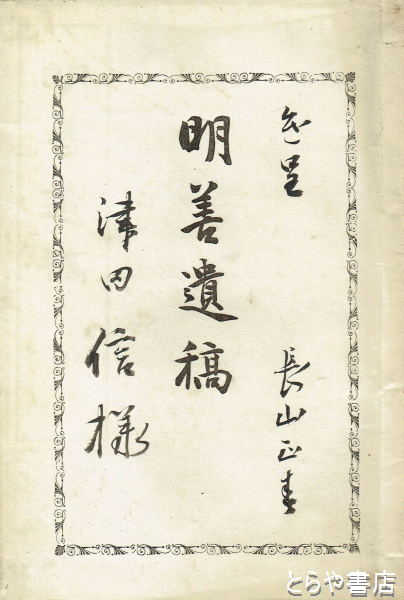 呈 長山正春
明善遺稿
津田信様
とらや書店